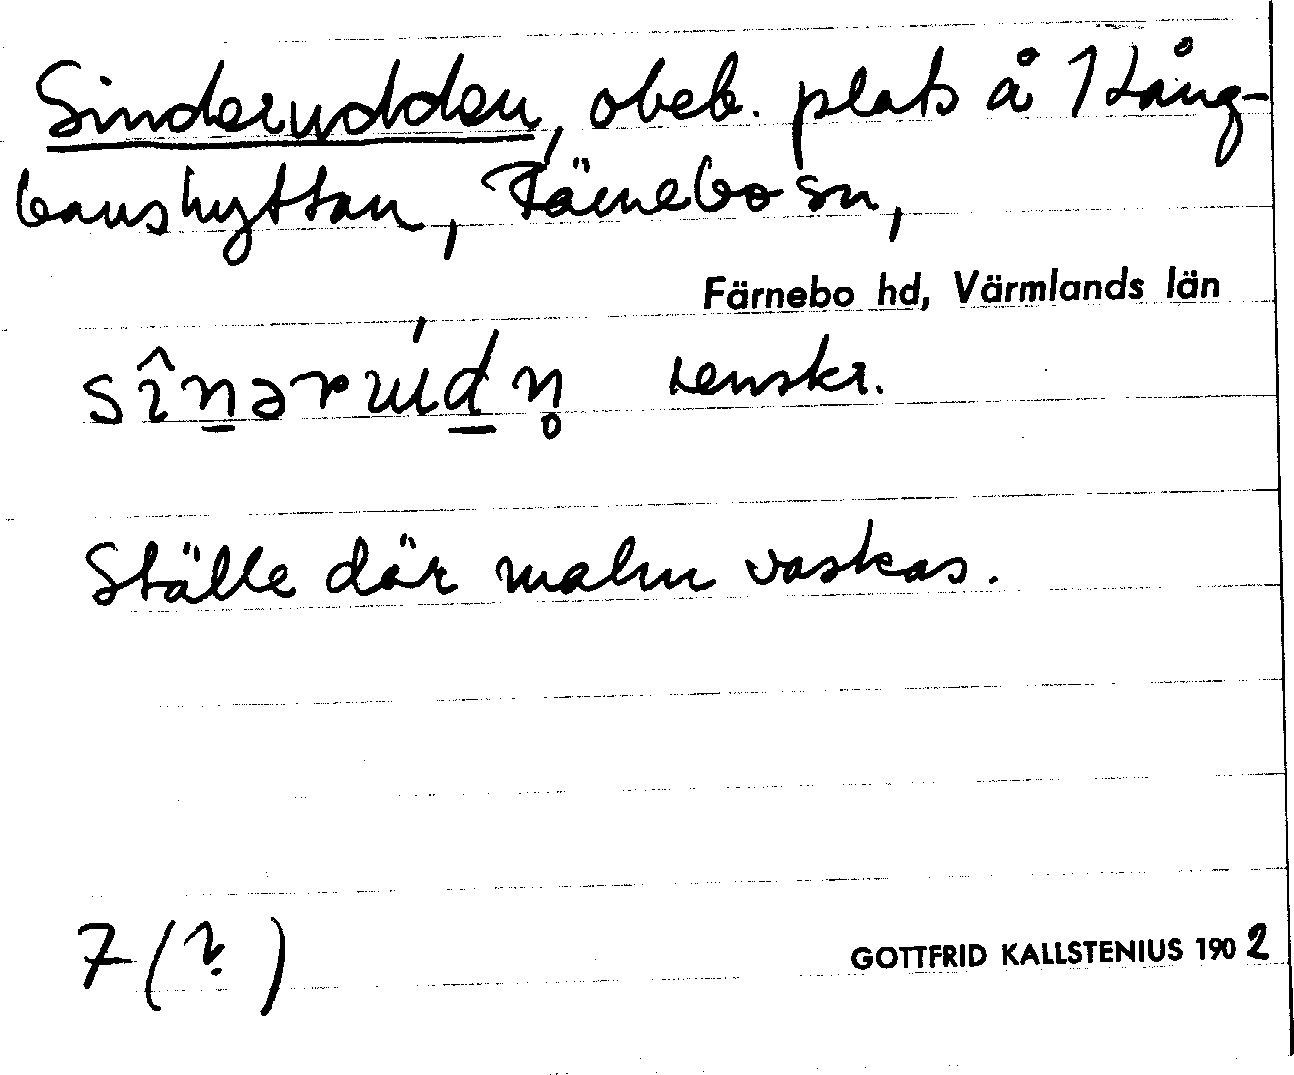 Sinderudden, obeb. plats å Lång-
banshyttan, Färnebo sn,
Färnebo hd, Värmlands län
renskr.
Ställe där malm vaskas.
7 (?)
GOTTFRID KALLSTENIUS 1902